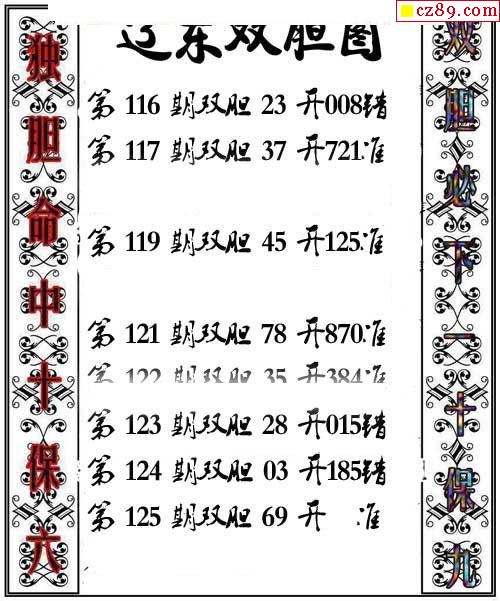 cz89.com
辽东双胆图
独胆命中十保六
第 116 期双胆 23 开008错
第 117 期双胆 37 开721准
第 119 期双胆 45 开125准
第 121 期双胆 78 开870准
第 122 期双胆 35 开384准
第 123 期双胆 28 开015错
第 124 期双胆 03 开185错
第 125 期双胆 69 开 准
双胆必下二十保九